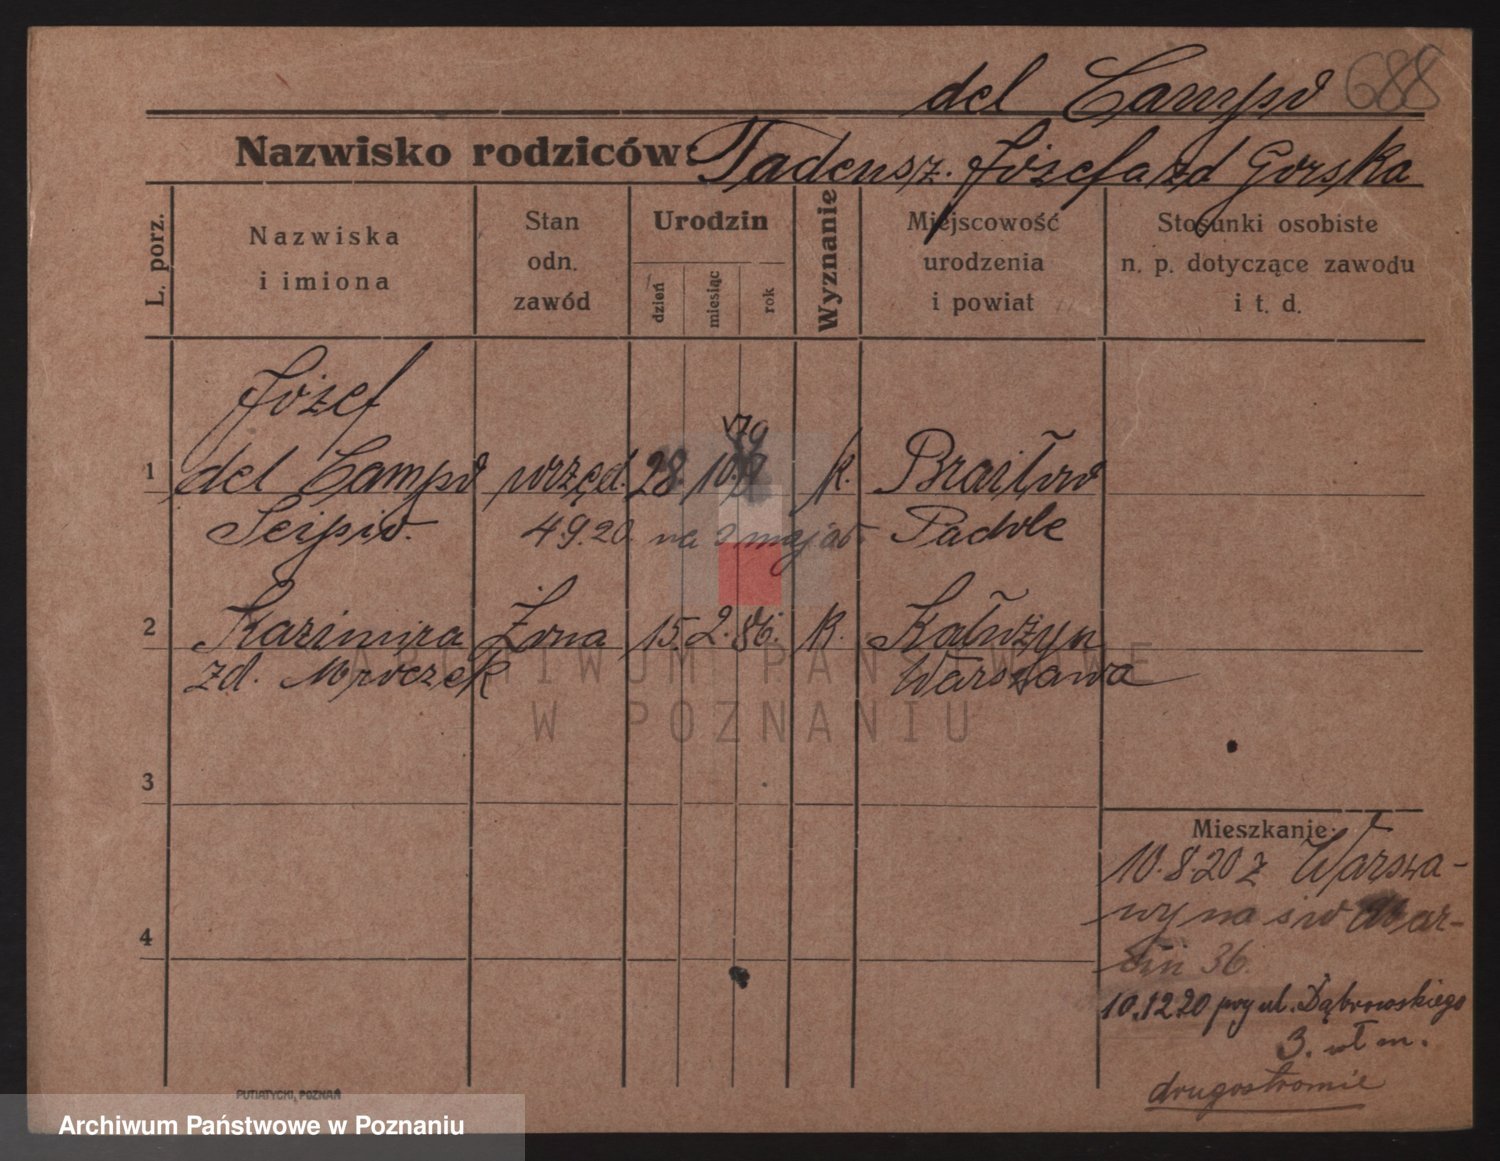 del Campo 688
Nazwisko rodziców: Tadeusz. Józefa zd Gorska
L. porz.
Nazwiska
i imiona
Stan
odn.
zawód
Urodzin
dzień
miesiąc
rok
Wyznanie
Miejscowość
urodzenia
i powiat
Stosunki osobiste
n. p. dotyczące zawodu
i t. d.
Józef
79
1 del Campo urzęd. 28. 10. k. Braiłow
Scipio. 4 9.20. na Podole
2 Kazimira Żona 15. 2. 86. k. Kałuzyn
zd. Mroczek Warszawa
3
4
Mieszkanie:
10.8.20 z Warsza-
wy na św Mar-
cin 36.
10.12.20 przy ul. Dąbrowskiego
3. wł m.
drugostronnie
PUTIATYCKI, POZNAŃ
ARCHIWUM PAŃSTWOWE
W POZNANIU
Archiwum Państwowe w Poznaniu